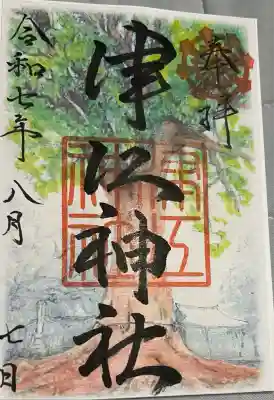 奉拝
津江神社
令和七年
八月
七日
津江
神社